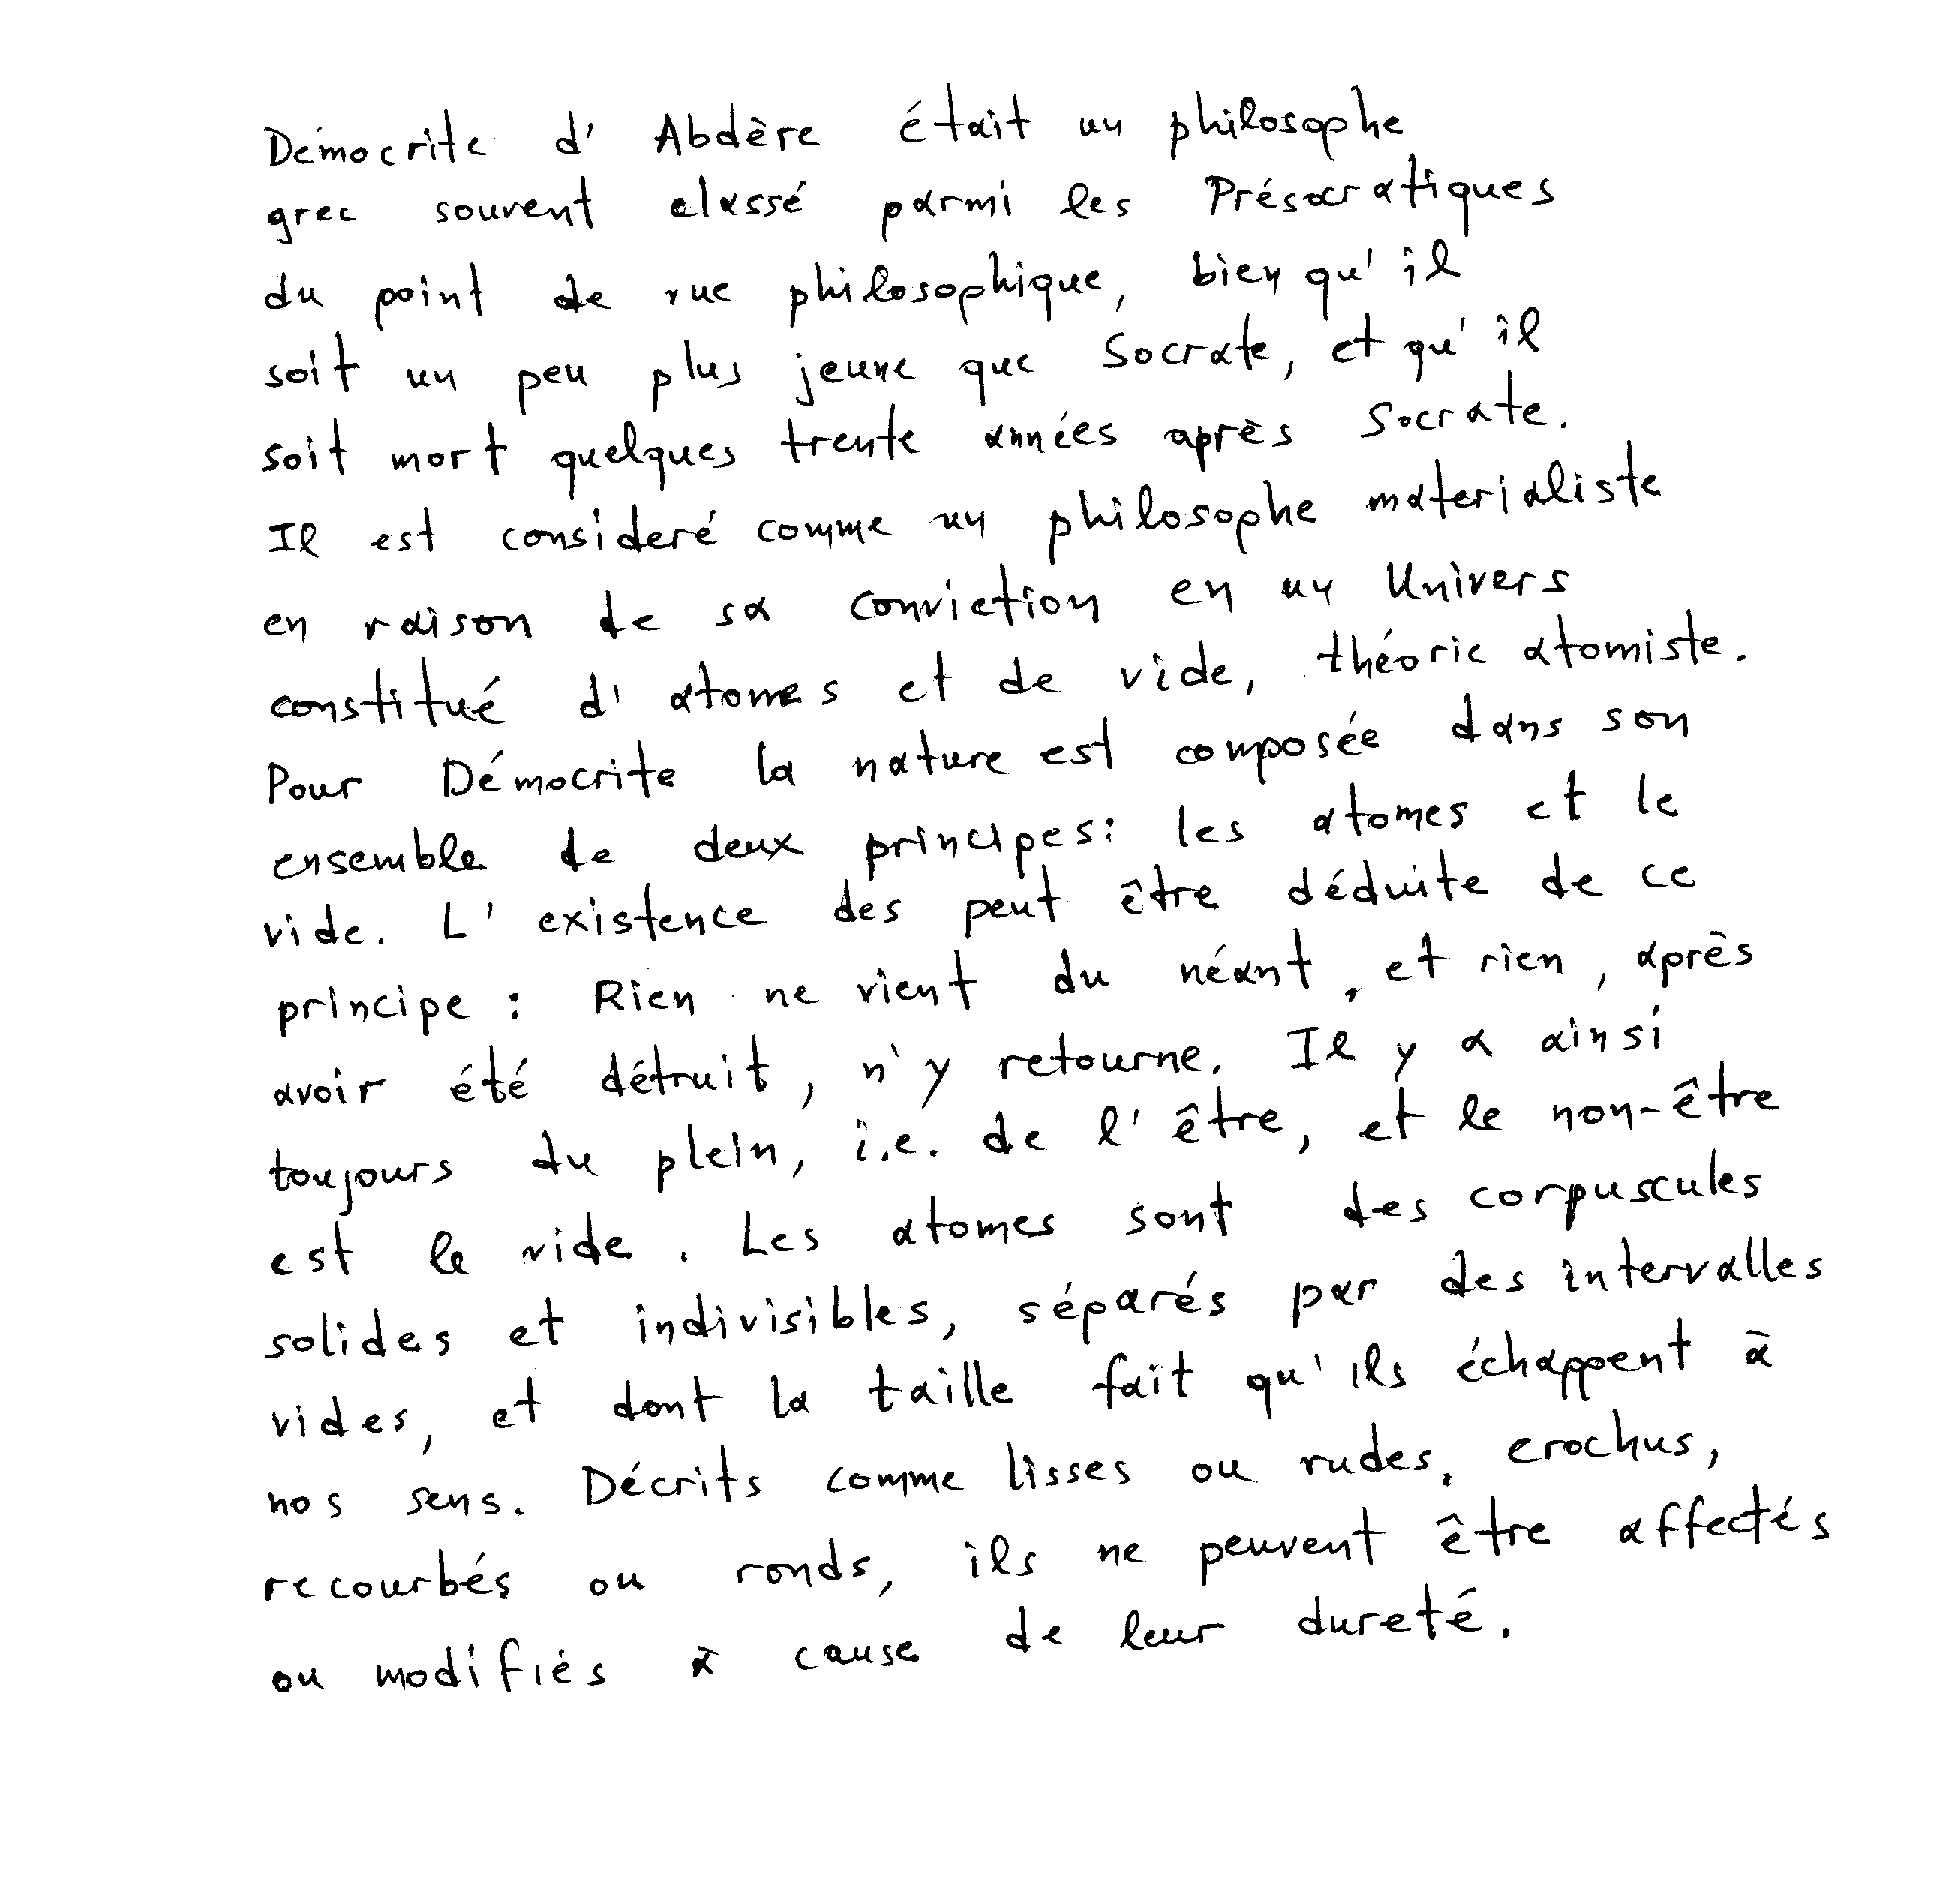 Démocrite d' Abdère était un philosophe
grec souvent classé parmi les Présocratiques
du point de vue philosophique, bien qu'il
soit un peu plus jeune que Socrate, et qu'il
soit mort quelques trente années après Socrate.
Il est consideré comme un philosophe materialiste
en raison de sa conviction en un Univers
constitué d' atomes et de vide, théorie atomiste.
Pour Démocrite la nature est composée dans son
ensemble de deux principes: les atomes et le
vide. L' existence des peut être déduite de ce
principe : Rien ne vient du néant, et rien, après
avoir été détruit, n'y retourne. Il y a ainsi
toujours du plein, i.e. de l' être, et le non-être
est le vide. Les atomes sont des corpuscules
solides et indivisibles, séparés par des intervalles
vides, et dont la taille fait qu'ils échappent à
nos sens. Décrits comme lisses ou rudes, crochus,
recourbés ou ronds, ils ne peuvent être affectés
ou modifiés à cause de leur dureté.